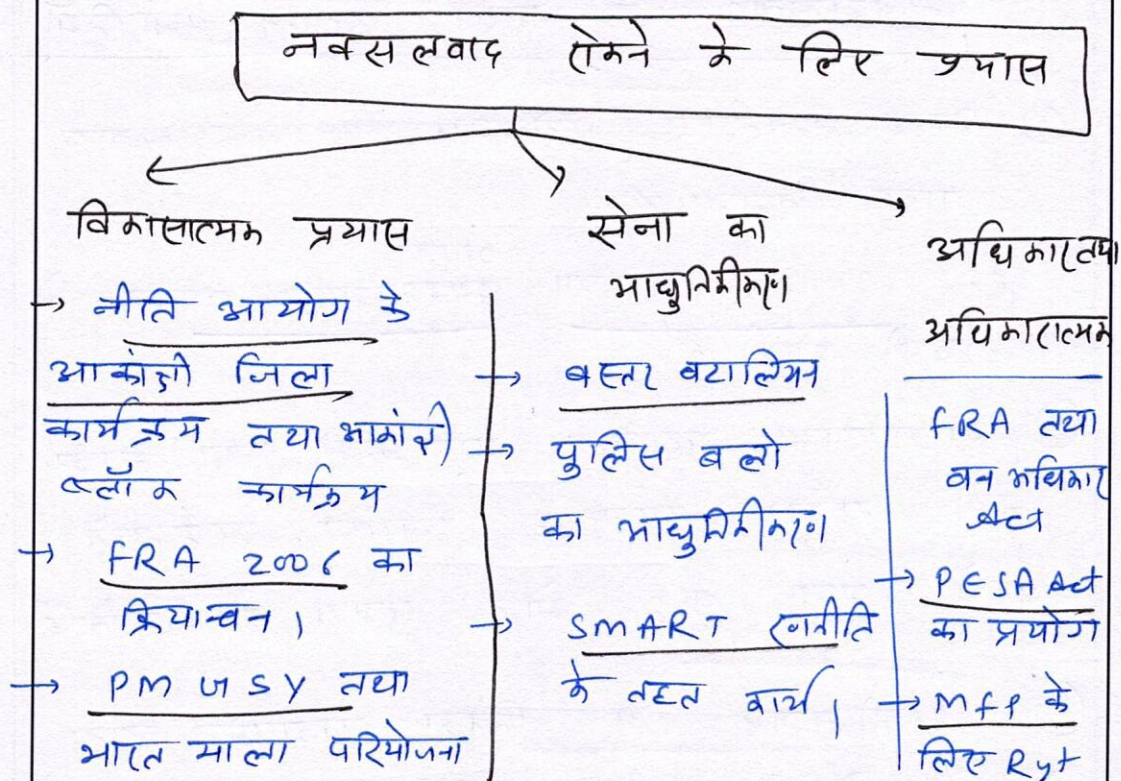 नक्सलवाद रोकने के लिए प्रयास
विकासात्मक प्रयास
→ नीति आयोग के
आकांक्षी जिला
कार्यक्रम तथा आकांक्षी
ब्लॉक कार्यक्रम
→ FRA 2006 का
क्रियान्वन।
→ PMGSY तथा
भारत माला परियोजना
सेना का
आधुनिकीकरण
→ बस्तर बटालियन
→ पुलिस बलो
का आधुनिकीकरण
→ SMART रणनीति
के तहत कार्य।
अधिकार तथा
अधिकारात्मक
FRA तथा
वन अधिकार
Act
→ PESA Act
का प्रयोग
→ MFP के
लिए Ryt